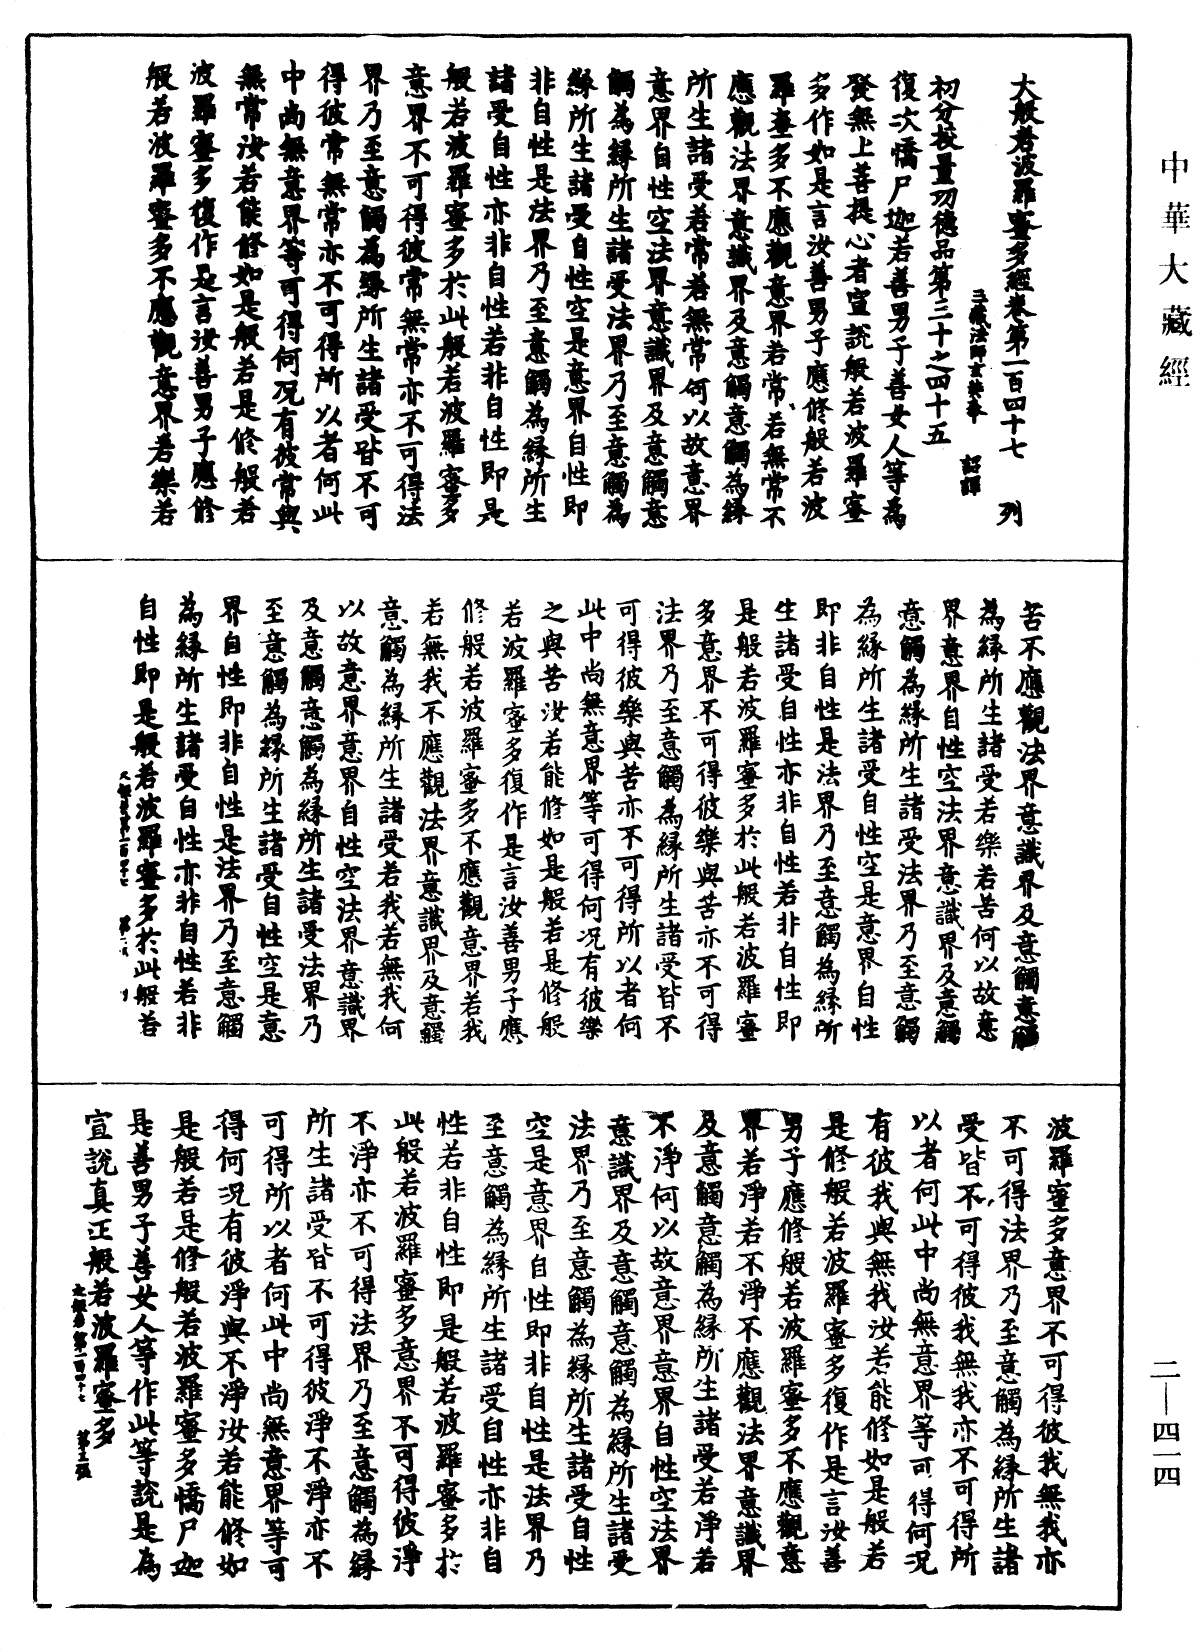 中華大藏經
大般若波羅蜜多經卷第一百四十七 列
三藏法師玄奘奉 詔譯
初分挍量功德品第三十之四十五
復次憍尸迦若善男子善女人等為
發無上菩提心者宣說般若波羅蜜
多作如是言汝善男子應修般若波
羅蜜多不應觀意界若常若無常不
應觀法界意識界及意觸意觸為緣
所生諸受若常若無常何以故意界
意界自性空法界意識界及意觸意
觸為緣所生諸受法界乃至意觸為
緣所生諸受自性空是意界自性即
非自性是法界乃至意觸為緣所生
諸受自性亦非自性若非自性即是
般若波羅蜜多於此般若波羅蜜多
意界不可得彼常無常亦不可得法
界乃至意觸為緣所生諸受皆不可
得彼常無常亦不可得所以者何此
中尚無意界等可得何況有彼常與
無常汝若能修如是般若是修般若
波羅蜜多復作是言汝善男子應修
般若波羅蜜多不應觀意界若樂若
苦不應觀法界意識界及意觸意觸
為緣所生諸受若樂若苦何以故意
界意界自性空法界意識界及意觸
意觸為緣所生諸受法界乃至意觸
為緣所生諸受自性空是意界自性
即非自性是法界乃至意觸為緣所
生諸受自性亦非自性若非自性即
是般若波羅蜜多於此般若波羅蜜
多意界不可得彼樂與苦亦不可得
法界乃至意觸為緣所生諸受皆不
可得彼樂與苦亦不可得所以者何
此中尚無意界等可得何況有彼樂
之與苦汝若能修如是般若是修般
若波羅蜜多復作是言汝善男子應
修般若波羅蜜多不應觀意界若我
若無我不應觀法界意識界及意觸
意觸為緣所生諸受若我若無我何
以故意界意界自性空法界意識界
及意觸意觸為緣所生諸受法界乃
至意觸為緣所生諸受自性空是意
界自性即非自性是法界乃至意觸
為緣所生諸受自性亦非自性若非
自性即是般若波羅蜜多於此般若
波羅蜜多意界不可得彼我無我亦
不可得法界乃至意觸為緣所生諸
受皆不可得彼我無我亦不可得所
以者何此中尚無意界等可得何況
有彼我與無我汝若能修如是般若
是修般若波羅蜜多復作是言汝善
男子應修般若波羅蜜多不應觀意
界若淨若不淨不應觀法界意識界
及意觸意觸為緣所生諸受若淨若
不淨何以故意界意界自性空法界
意識界及意觸意觸為緣所生諸受
法界乃至意觸為緣所生諸受自性
空是意界自性即非自性是法界乃
至意觸為緣所生諸受自性亦非自
性若非自性即是般若波羅蜜多於
此般若波羅蜜多意界不可得彼淨
不淨亦不可得法界乃至意觸為緣
所生諸受皆不可得彼淨不淨亦不
可得所以者何此中尚無意界等可
得何況有彼淨與不淨汝若能修如
是般若是修般若波羅蜜多憍尸迦
是善男子善女人等作此等說是為
宣說真正般若波羅蜜多
大般若第一百四十七 第三張
二—四一四